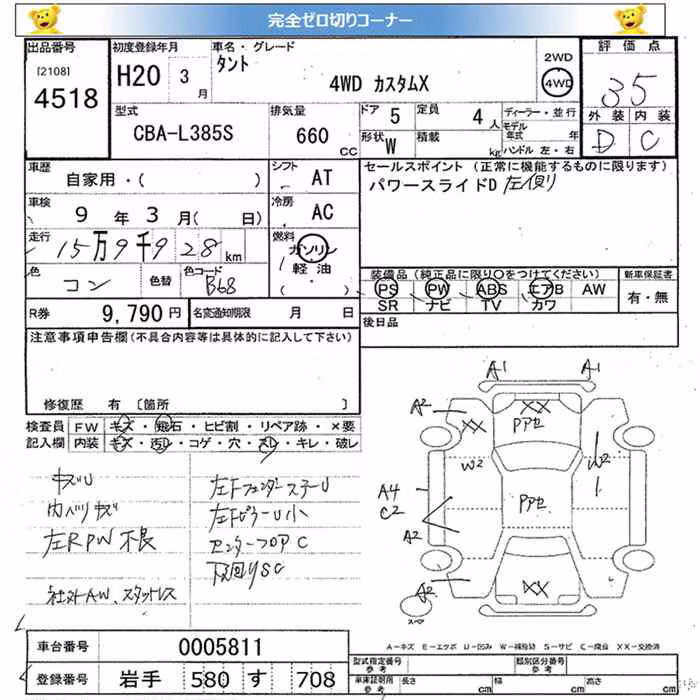 完全ゼロ切りコーナー
出品番号 [2108] 4518
初度登録年月 H20 3月
車名・グレード タント 4WD カスタムX
2WD 4WD
評価点 35
外装 D 内装 C
型式 CBA-L385S
排気量 660 CC
ドア 5 定員 4人
形状 W 積載 kg
ディーラー・並行
モデル年式 年
ハンドル 左・右
車歴 自家用・( )
シフト AT
車検 9年 3月( 日)
冷房 AC
走行 15万9千928km
燃料 ガソリン 軽油 ( )
色 コン 色替 色コード B68
R券 9,790円 名変通知期限 月 日
セールスポイント(正常に機能するものに限ります)
パワースライドD 左側
装備品(純正品に限り○をつけてください) 新車保証書
PS PW ABS エアB AW 有・無
SR ナビ TV カワ
後日品
注意事項申告欄(不具合内容等は具体的に記入して下さい)
修復歴 有〔箇所 〕
検査員記入欄 FW キズ・飛石・ヒビ割・リペア跡・×要
内装 キズ・汚レ・コゲ・穴・スレ・キレ・破レ
キズU
内ヘリキズ
左RPW不良
社外AW、スタットレス
左Fフェンダーステー U
左FピラーU小
センターフロアC
下回りSC
A1 A1
A2 XX XX PPセ
W2 W2
A4 C2 PPセ
A2
A2 XX
スペア
A=キズ E=エクボ U=凹み W=補修跡 S=サビ C=腐食 XX=交換済
車台番号 0005811
登録番号 岩手 580 す 708
型式指定番号 参考 類別区分番号 参考
車庫証明用 参考 長さ cm 幅 cm 高さ cm